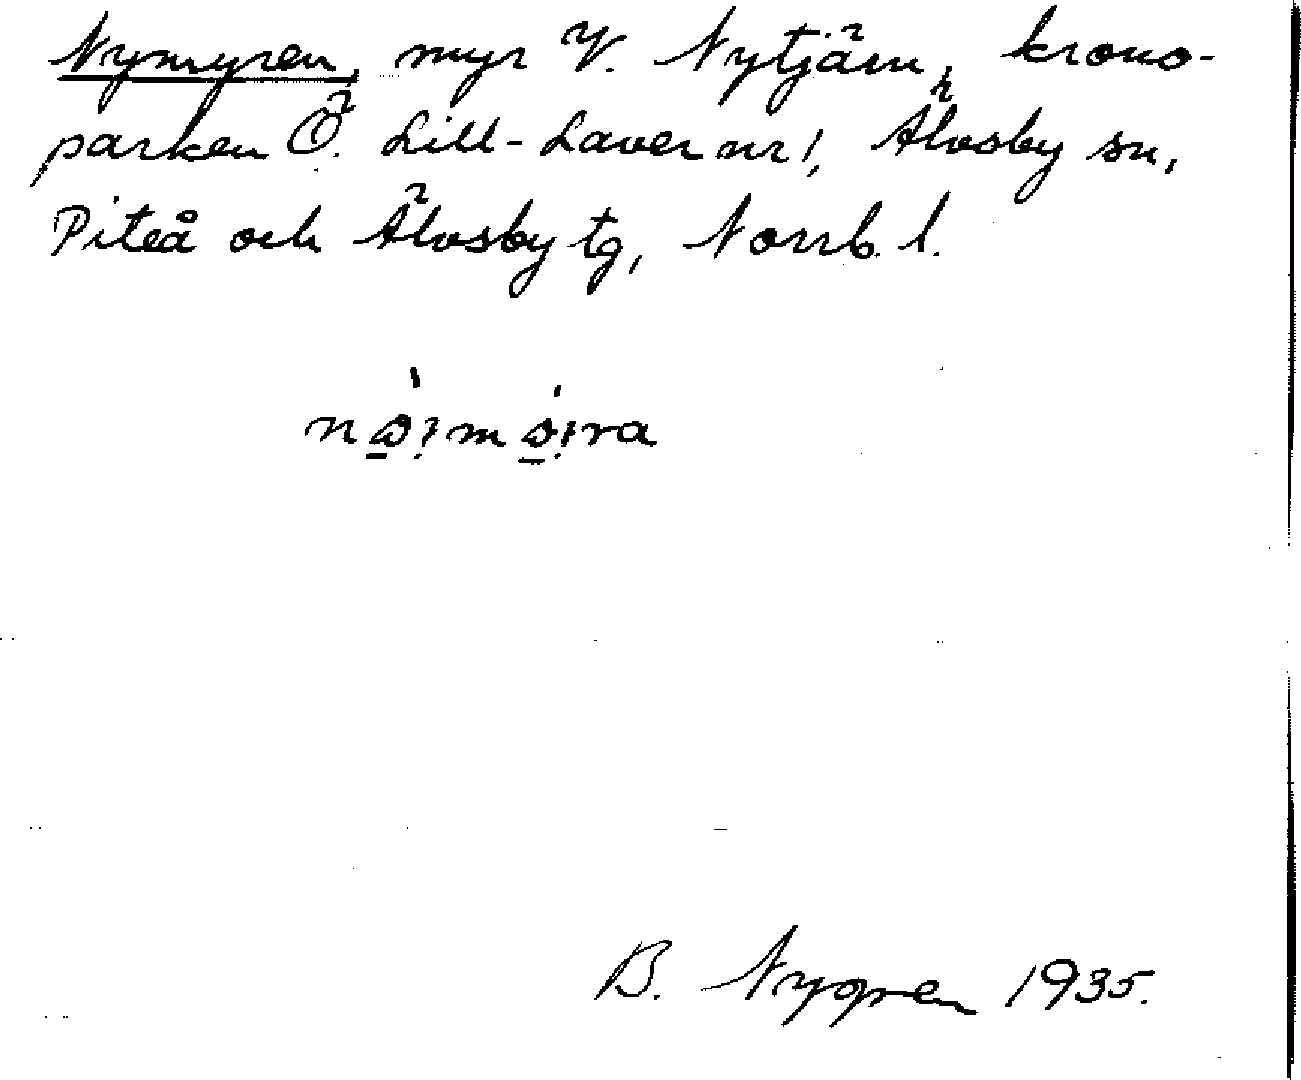 Nymyren, myr V. Nytjärn, krono-
parken Ö. Lill-Laver nr 1, Älvsby sn,
Piteå och Älvsby tg, Norrb. l.
B. Nygren 1935.